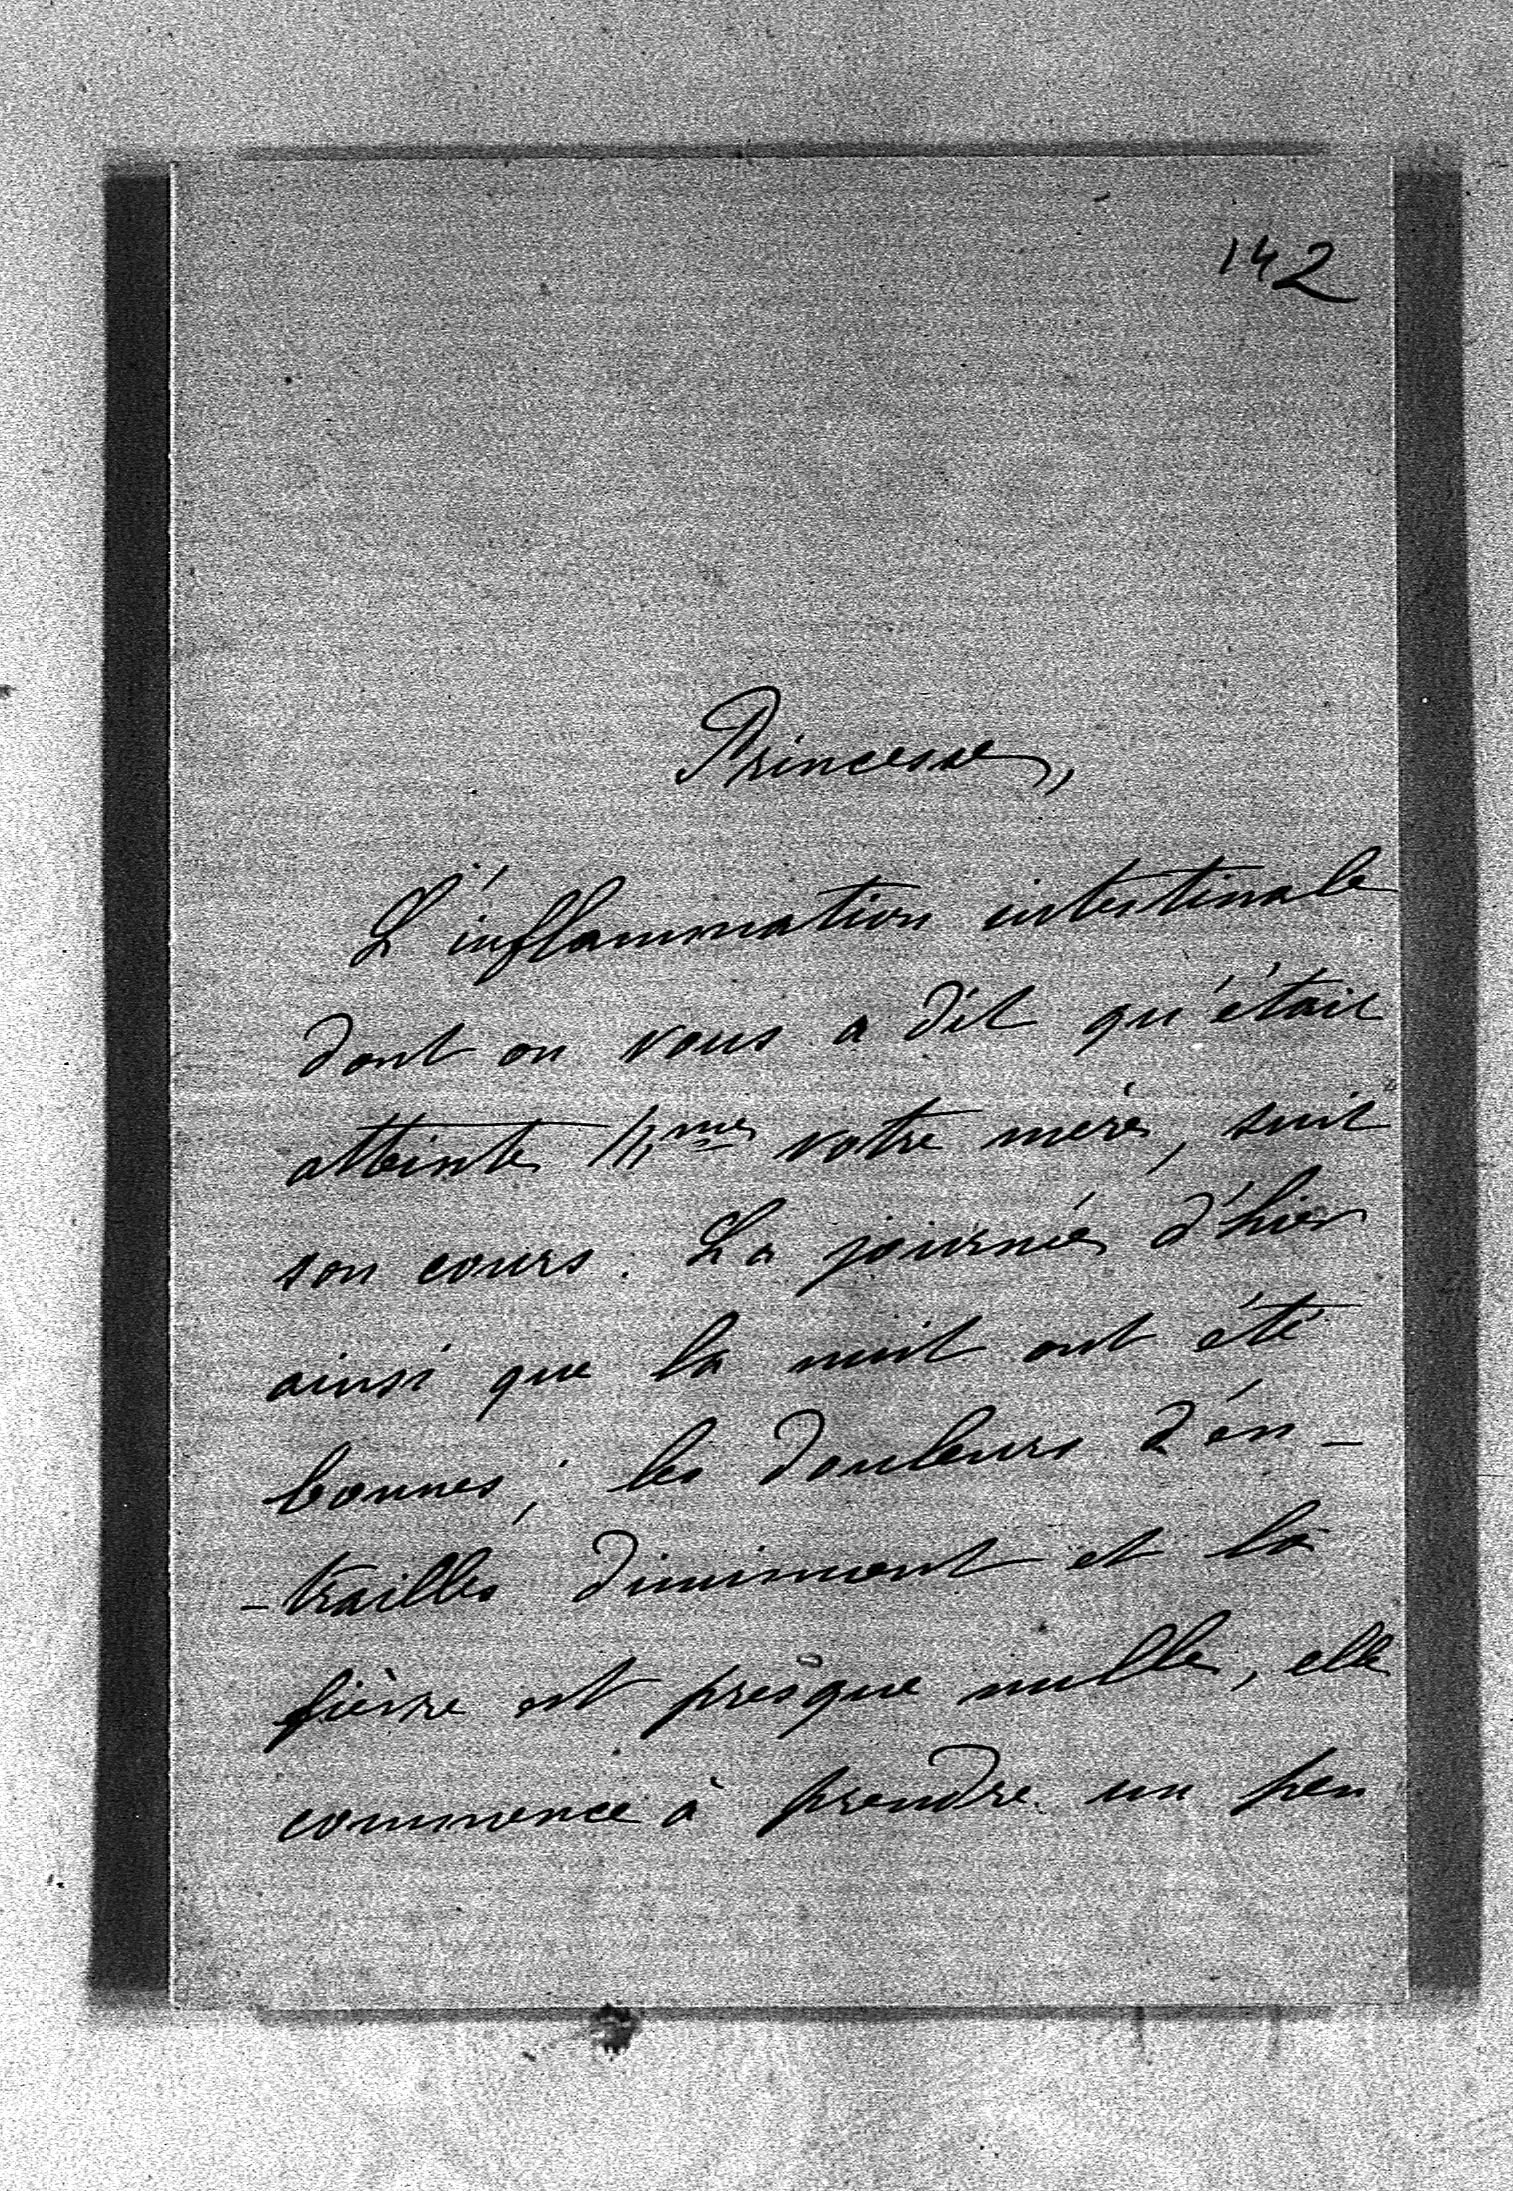 142
Princesse,
L'inflammation intestinale
dont on vous a dit qu'était
atteinte Mme votre mère, suit
son cours. La journée d'hier
ainsi que la nuit ont été
bonnes; les douleurs d'en-
-trailles diminuent et la
fièvre est presque nulle, elle
commence à prendre un peu